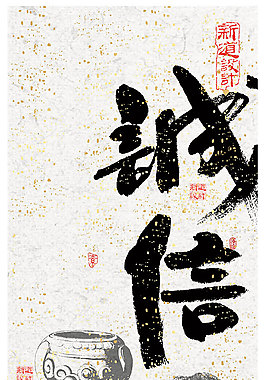 新道設計
誠
信